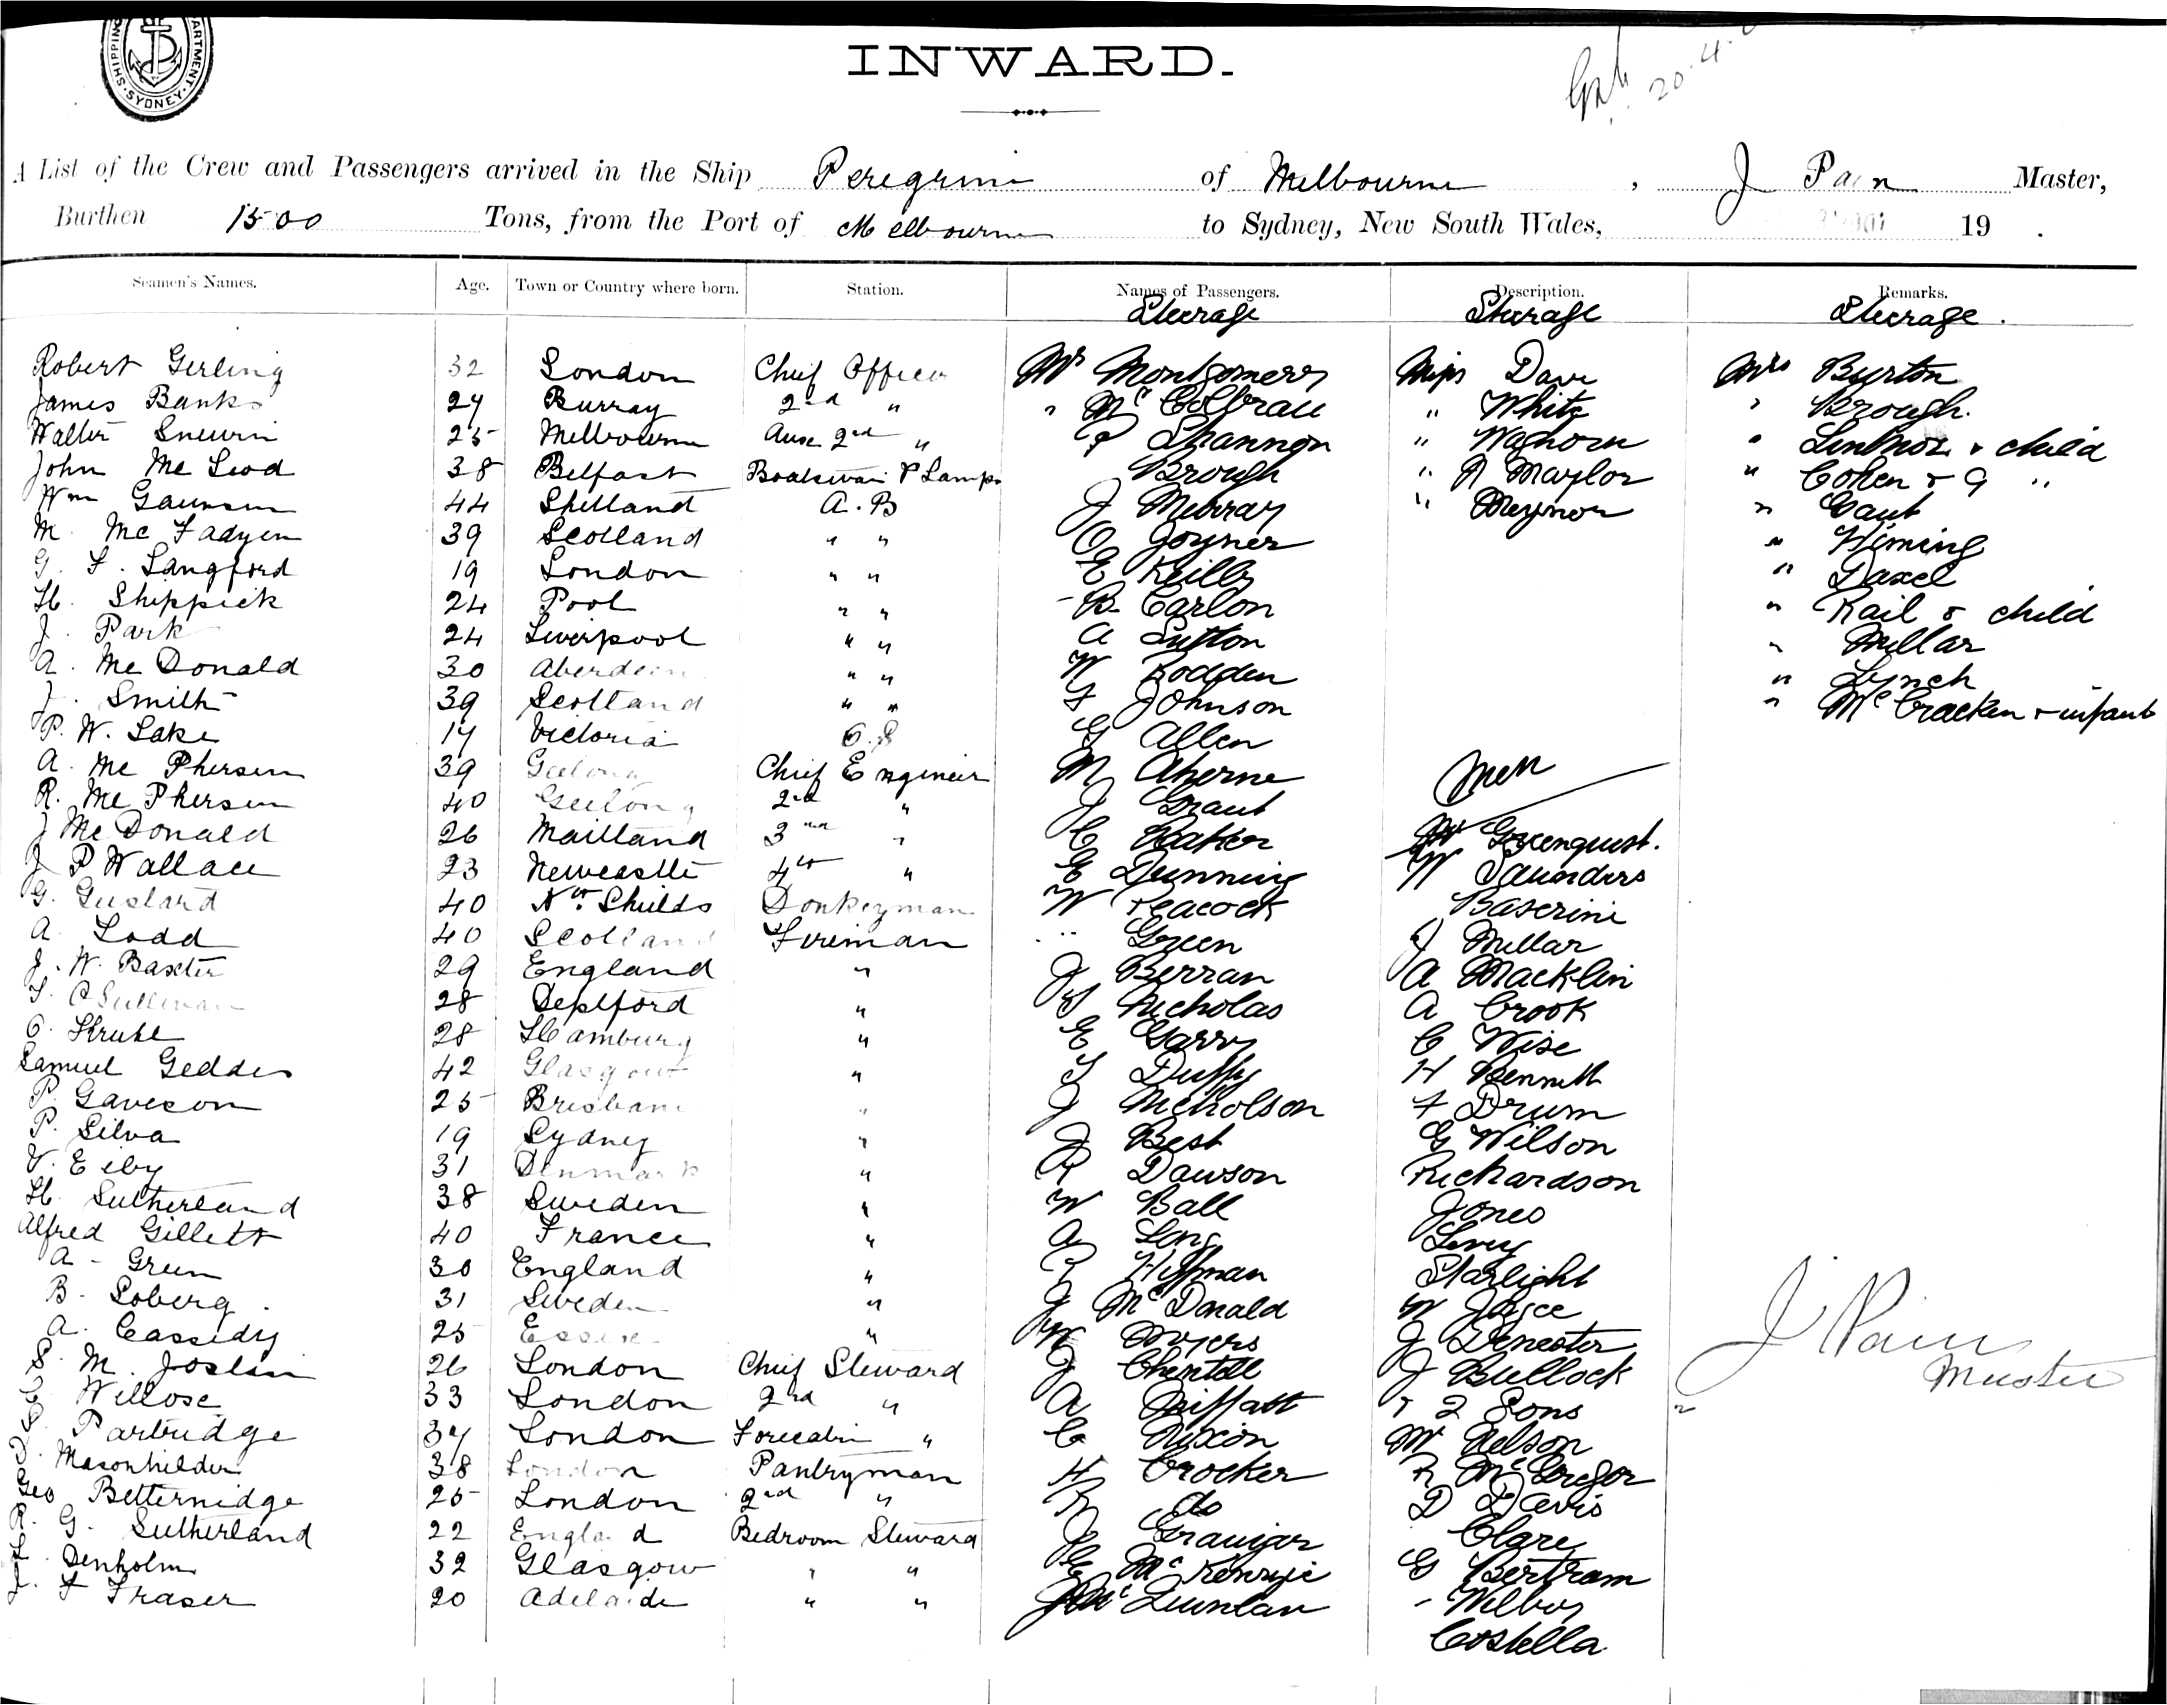 SHIPPING DEPARTMENT. SYDNEY.
INWARD.
20.4.
A List of the Crew and Passengers arrived in the Ship Peregrine of Melbourne, J Pain Master,
Burthen 1500 Tons, from the Port of Melbourne to Sydney, New South Wales, 19 .
Seamen's Names. Age. Town or Country where born. Station. Names of Passengers. Description. Remarks.
Steerage Steerage Steerage.
Robert Gerling 32 London Chief Officer Mr Montgomery Miss Davi Mrs Burton
James Banks 27 Burray 2nd " " McColbrau " White " Brough.
Walter 25 Melbourne Aux 2nd " P Shannon " Waghorn " & child
John McLeod 38 Belfast Boatswain & Lamps Brough " R Maylor " Cohen & 9 "
Wm 44 Shetland A.B J Murray " " Gaut
M. McFadyen 39 Scotland " " O Joyner " Wiming
G. F. Langford 19 London " " E Reilly " Daxel
H. Shippick 24 Pool " " B. Carlon " Rail & child
J. Park 24 Liverpool " " A Sutton " Millar
A. McDonald 30 Aberdeen " " W Rodden " Lynch
J. Smith 39 Scotland " " F Johnson " McCracken & infant
P. W. Lake 17 Victoria O.S G Allen
A. McPherson 39 Geelong Chief Engineer M Aherne Men
R. McPherson 40 Geelong 2nd " J Grant
J McDonald 26 Maitland 3rd " C Greenquist.
J P Wallace 23 Newcastle 4th " E Dunning W Saunders
G. Gustard 40 Nth Shields Donkeyman W Peacock Baserini
A. Ladd 40 Scotland Fireman " Green J Millar
J. W. Baxter 29 England " J Berran A Macklin
T. O'Sullivan 28 Deptford " Nicholas A Crook
O. 28 Hamburg " E Garry C Wise
Samuel Geddes 42 Glasgow " T Duffy H Bennett
P. Gaveson 25 Brisbane " J Nicholson F Drum
P. Silva 19 Sydney " J Best G Wilson
V. Eiby 31 Denmark " R Dawson Richardson
H. Sutherland 38 Sweden " W Ball Jones
Alfred Gillett 40 France " A Long Levy
A. Green 30 England " Huffman Starlight
B. Soberg. 31 Sweden " J McDonald W Joyce
A. Cassidy 25 Essex " W Myers J
S. M. Joslin 26 London Chief Steward J Chentell J Bullock
C. Willose 33 London 2nd " A Miffatt & 2 Sons
S. Partridge 34 London Forecabin " C Nixon W Nelson
J. Masonhilder 38 London Pantryman H Crocker R McGregor
Geo Betteridge 25 London 2nd " R do D Davis
R. G. Sutherland 22 England Bedroom Steward J Grainger Clare
L. Denholm 32 Glasgow " " E McKenzie G Bertram
J. F Fraser 20 Adelaide " " Quinlan " Wilboy
Costella
J Pain
Master